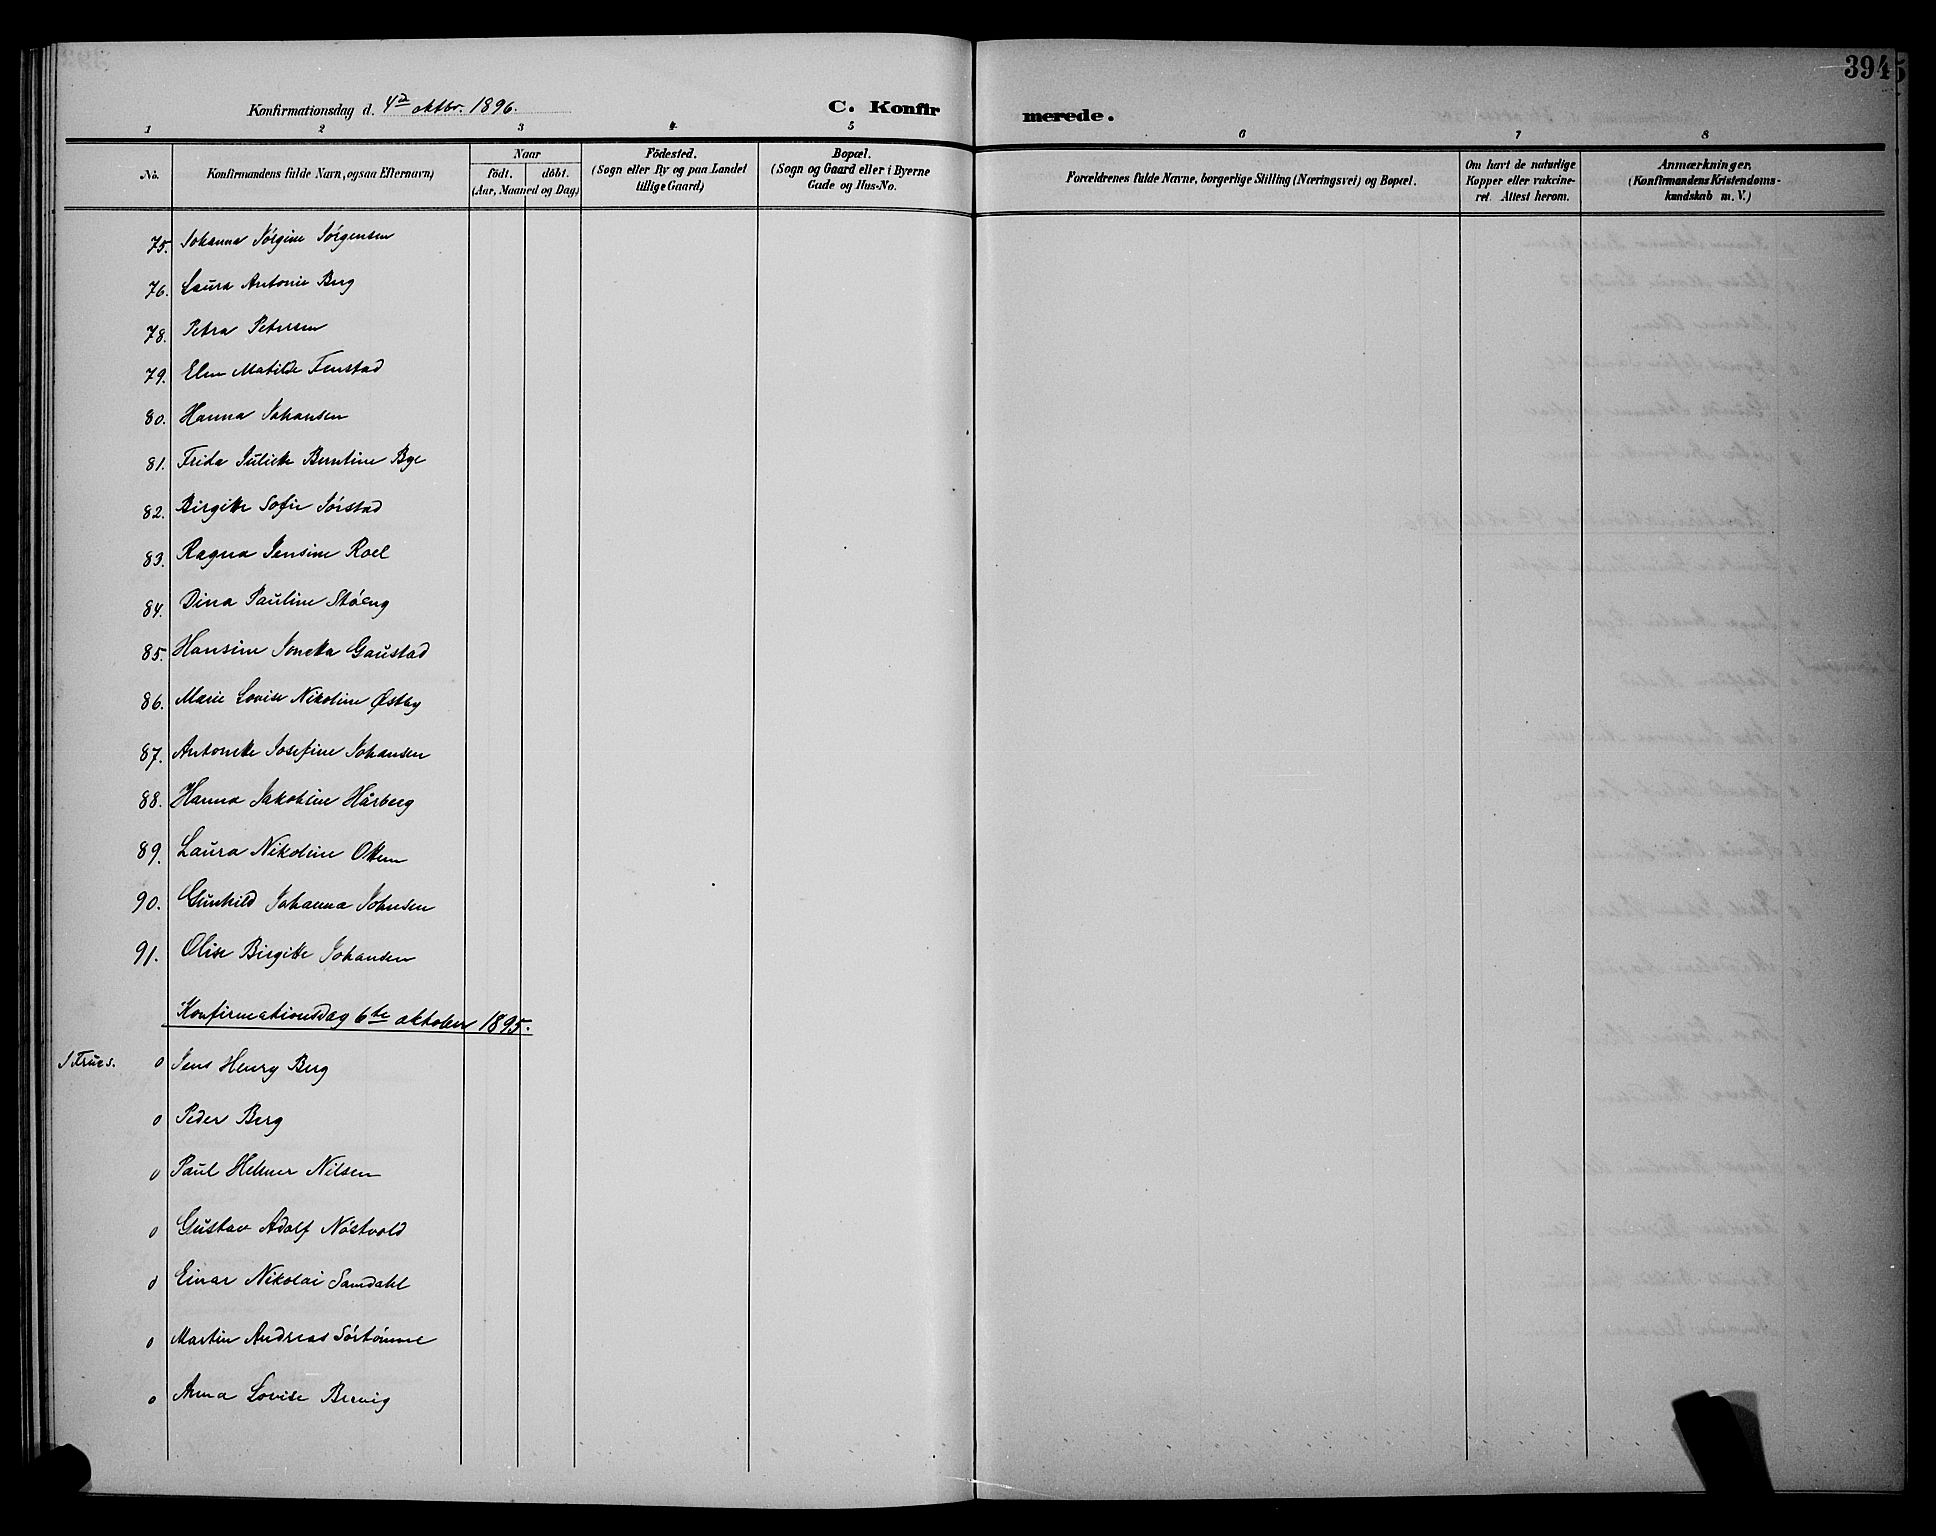 394
Konfirmationsdag d. 4de oktbr. 1896.
C. Konfirmerede.
1 2 3 4 5 6 7 8
No.
Konfirmandens fulde Navn, ogsaa Efternavn)
Naar
födt. döbt.
(Aar, Maaned og Dag)
Födested.
(Sogn eller By og paa Landet
tillige Gaard)
Bopæl.
(Sogn og Gaard eller i Byerne
Gade og Hus-No.
Forældrenes fulde Navne, borgerlige Stilling (Næringsvei) og Bopæl.
Om havt de naturlige
Kopper eller vakcine-
ret. Attest herom.
Anmærkninger.
(Konfirmandens Kristendoms-
kundskab m. V.)
75. Johanna Jörgine Jörgensen
76. Laura Antonie Berg
78. Petra Petersen
79. Elen Matilde Fenstad
80. Hanna Johansen
81. Frida Juliette Berntine Bye
82. Birgitte Sofie Sörstad
83. Ragna Jensine Roel
84. Dina Pauline Stöeng
85. Hansine Jonetta Gaustad
86. Marie Lovise Nikoline Østby
87. Antonette Josefine Johansen
88. Hanna Jakobine Hårberg
89. Laura Nikoline Ottem
90. Gunhild Johanna Johnsen
91. Olise Birgitte Johansen
Konfirmationsdag 6te oktober 1895.
I Frues. 0 Jens Henry Berg
0 Peder Berg
0 Paul Helmer Nilsen
0 Gustav Adolf Nöstvold
0 Einar Nikolai Samdahl
0 Martin Andreas Sörtömme
0 Anna Lovise Brevig